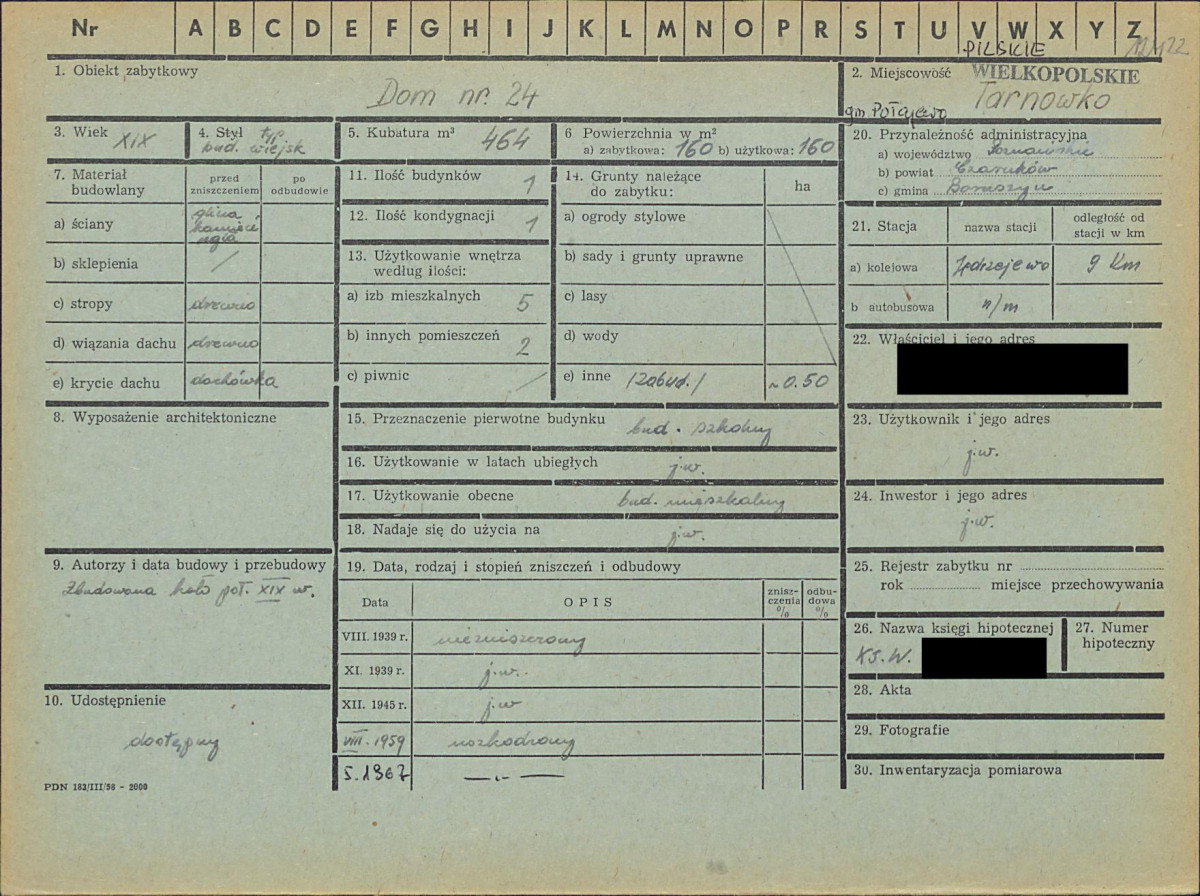 Nr A B C D E F G H I J K L M N O P R S T U V W X Y Z
PILSKIE
1. Obiekt zabytkowy
Dom nr. 24
2. Miejscowość WIELKOPOLSKIE
Tarnowko
gm Połajewo
3. Wiek XIX
4. Styl typ
bud. wiejsk
5. Kubatura m³ 464
6 Powierzchnia w m²
a) zabytkowa: 160 b) użytkowa: 160
7. Materiał budowlany
przed zniszczeniem
po odbudowie
a) ściany glina, kamień cegła
b) sklepienia /
c) stropy drewno
d) wiązania dachu drewno
e) krycie dachu dachówka
8. Wyposażenie architektoniczne
9. Autorzy i data budowy i przebudowy
Zbudowana koło poł. XIX w.
10. Udostępnienie
dostępny
PDN 183/III/58 - 2000
11. Ilość budynków 1
12. Ilość kondygnacji 1
13. Użytkowanie wnętrza
według ilości:
a) izb mieszkalnych 5
b) innych pomieszczeń 2
c) piwnic /
14. Grunty należące
do zabytku:
ha
a) ogrody stylowe
b) sady i grunty uprawne
c) lasy
d) wody
e) inne /zabud./ ~0.50
15. Przeznaczenie pierwotne budynku bud. szkolny
16. Użytkowanie w latach ubiegłych j.w.
17. Użytkowanie obecne bud. mieszkalny
18. Nadaje się do użycia na j.w.
19. Data, rodzaj i stopień zniszczeń i odbudowy
Data OPIS zniszczenia % odbudowa %
VIII. 1939 r. niezniszczony
XI. 1939 r. j.w.
XII. 1945 r. j.w
VIII. 1959 uszkodzony
5. 1967 —„—
20. Przynależność administracyjna
a) województwo Poznańskie
b) powiat Czarnków
c) gmina Boruszyn
21. Stacja
nazwa stacji
odległość od stacji w km
a) kolejowa Jędrzejewo 9 Km
b autobusowa n/m
22. Właściciel i jego adres
23. Użytkownik i jego adres
j.w.
24. Inwestor i jego adres
j.w.
25. Rejestr zabytku nr
rok miejsce przechowywania
26. Nazwa księgi hipotecznej
KS.W.
27. Numer
hipoteczny
28. Akta
29. Fotografie
30. Inwentaryzacja pomiarowa